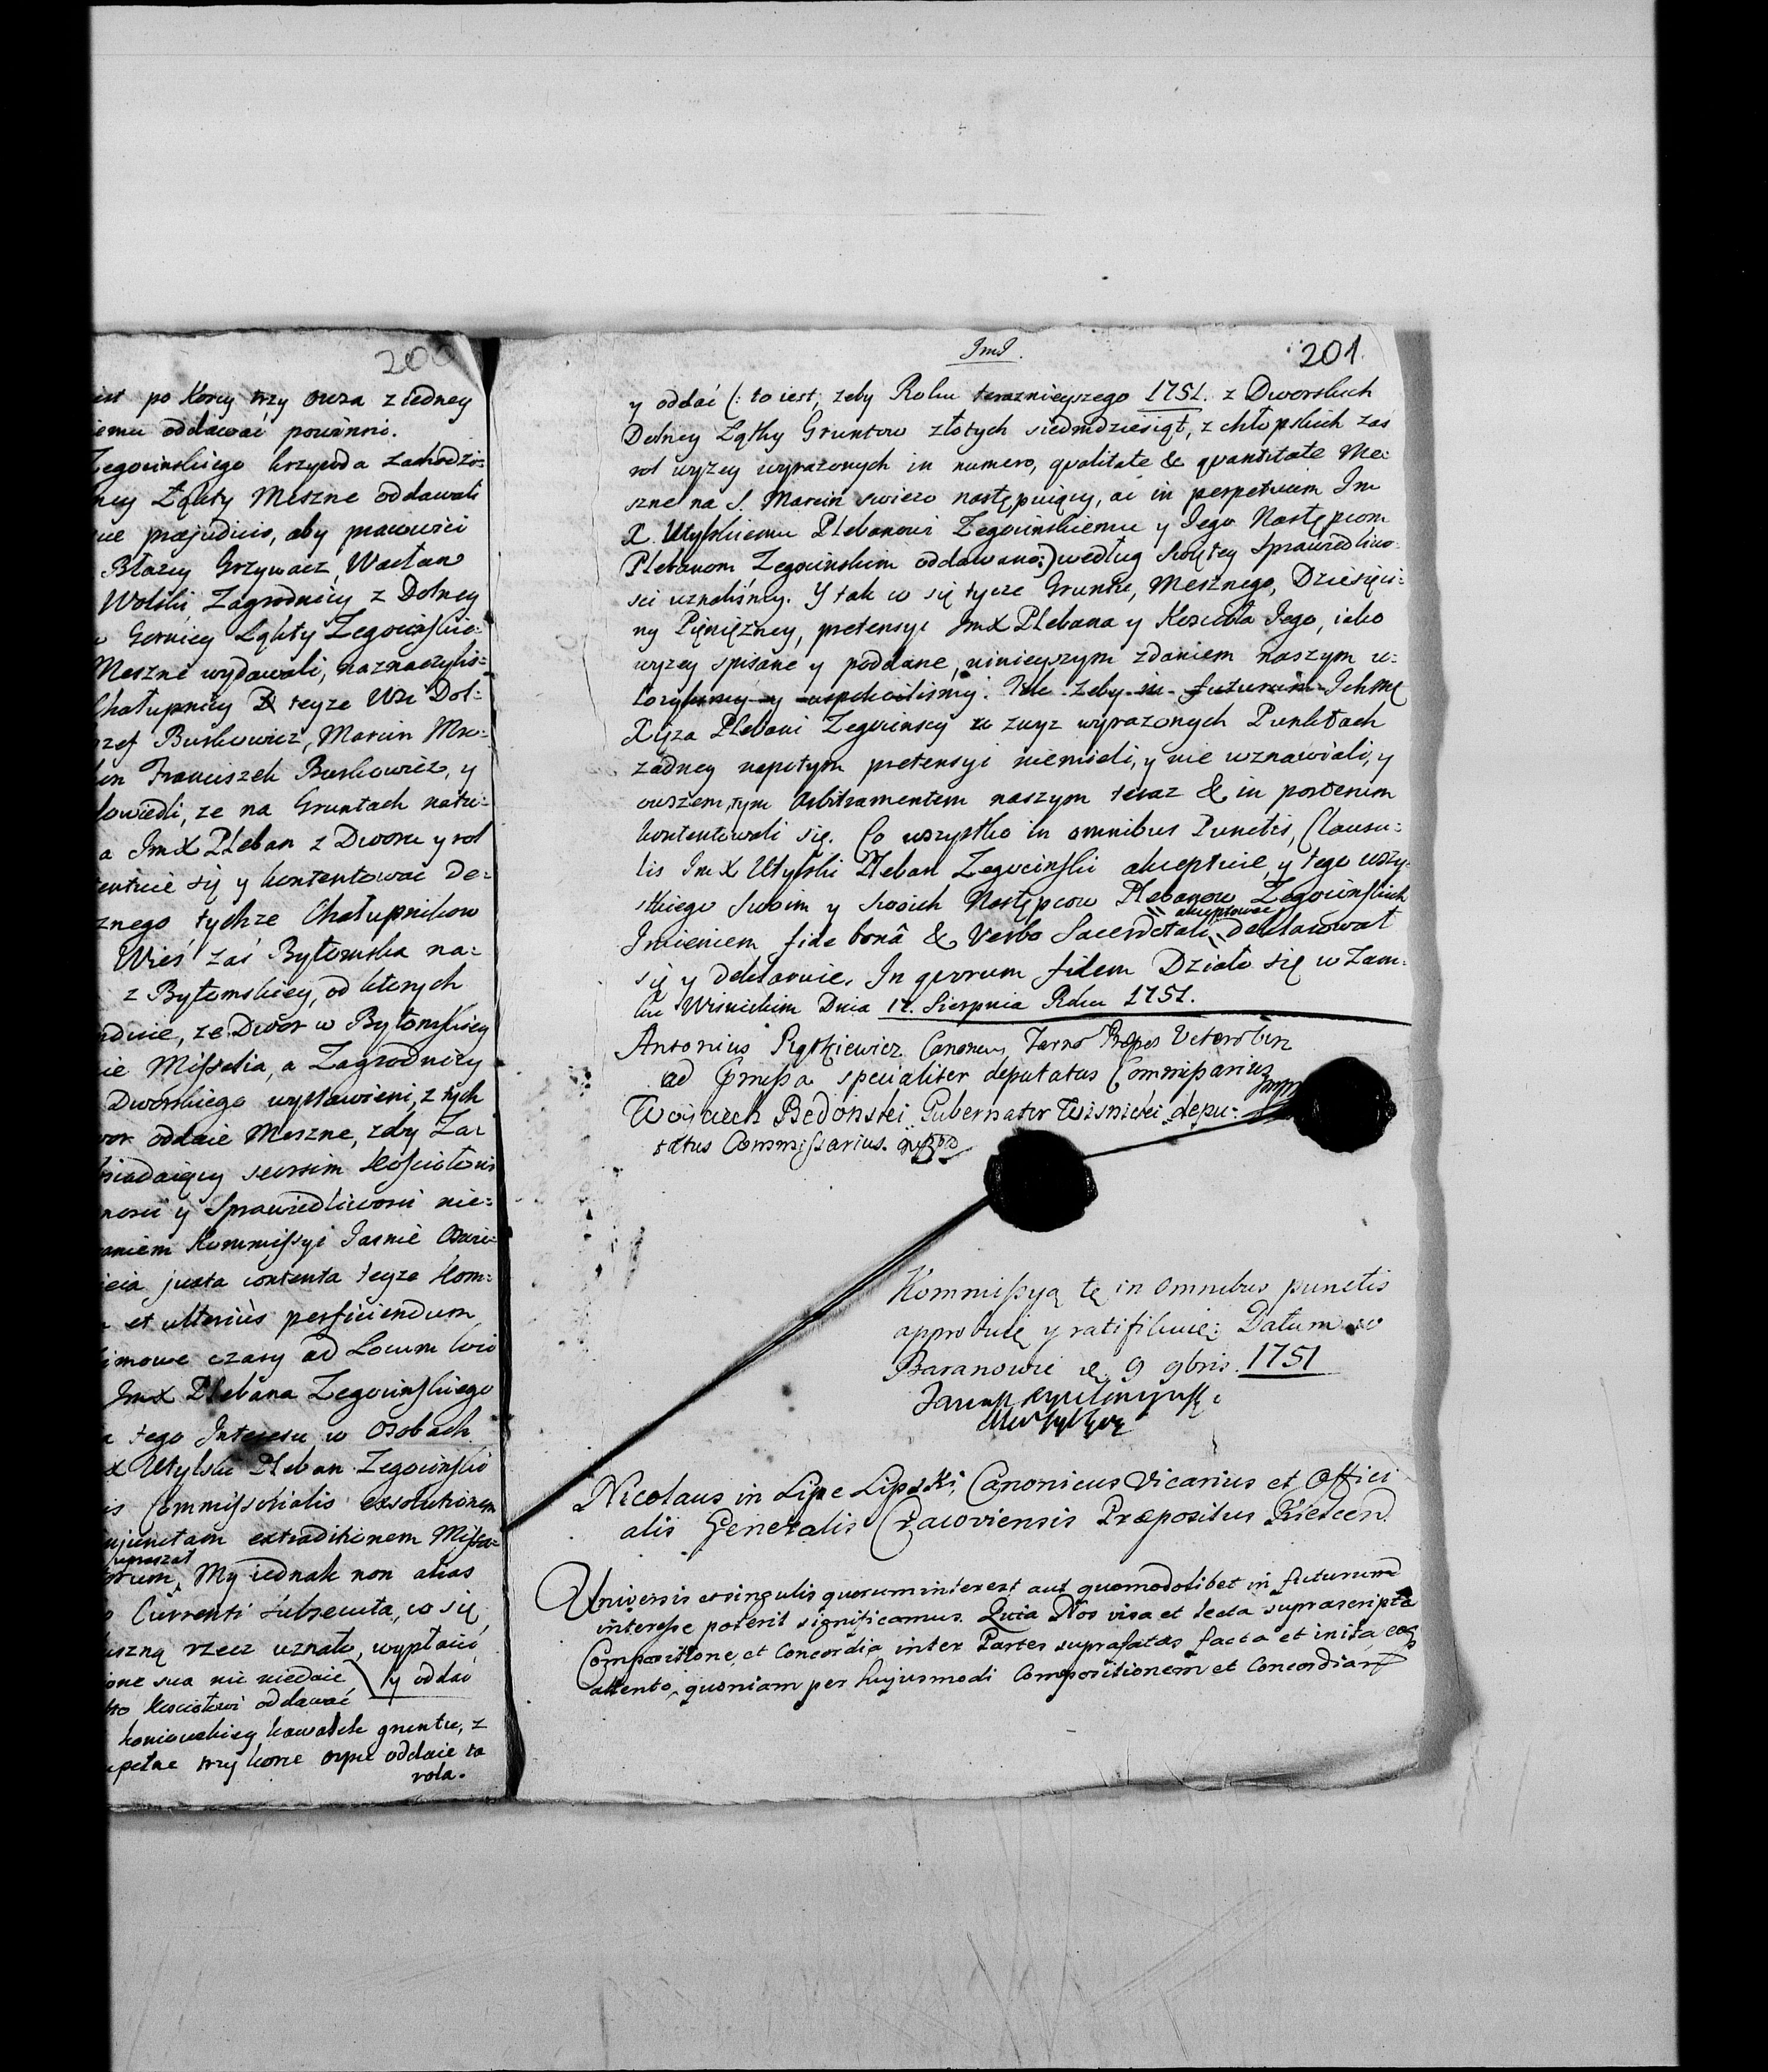 200
po Korcy trzy owsa z iedney
oddawać powinni.
Zegocinskiego krzywda zachodzi=
Łąkty Meszne oddawali
præjudicio, aby prawowici
Błazey Grzywacz, Wacław
Wolski, Zagrodnicy z Dolney
Gorniey Łąkty Zegocinskie=
Meszne wydawali, naznaczylis=
Chałupnicy teyze Wsi Dol=
Burkowicz, Marcin Mro=
Franciszek Burkowicz, y
ze na Gruntach natu=
a ImX Pleban z Dworu y rol
się y kontentować de=
tychze Chałupnikow
Wieś zaś Bytomska na=
z Bytomskiey, od ktorych
ze Dwor w Bytomskiey
Missalia, a Zagrodnicy
Dworskiego wystawieni, z tych
oddaie Meszne, zeby Za=
seorsim Kościołowi
y Sprawiedliwości nie=
Kommissyi Jasnie Oswie=
juxta contenta teyze Kom=
et ulterius perficiendum
czasy ad Locum
ImX Plebana Zegocinskiego
tego Interesu w Osobach
Utylski Pleban Zegocinski
Commissorialis exsolutionem
extraditionem Missa=
upraszał
My iednak non alias
Currenti subsecuta, co się
rzecz uznało, wypłacić
sua nic niedaie y oddać
Kosciołowi oddawać
koniowskiey kawałek gruntu, z
trzy korce ospu oddaie ta
rola.
ImJ.
201.
y oddać (: to iest, zeby Roku teraznieyszego 1751. z Dworskich
Dolney Łąkty Gruntow złotych siedmdziesiąt, z chłopskich zas
rol wyzey wyrazonych in numero, qualitate & quantitate Me=
szne na S. Marcin swiezo następuiący, ac in perpetuum Im
X. Utylskiemu Plebanowi Zegocinskiemu y Jego Następcom
Plebanom Zegocinskim oddawano:) według Swiętey Sprawiedliwo=
sci uznaliśmy. Y tak co się tycze Gruntu, Mesznego, Dziesięci=
ny Pięnięzney, pretensye ImX Plebana y Koscioła Jego, iako
wyzey spisane y poddane, ninieyszym zdaniem naszym u=
lozylismy y uspokoilismy. Tak zeby in futurum Ichmę
Xięza Plebani Zegocinscy w zwyz wyrazonych Punktach
zadney napotym pretensyi niemieli, y nie wznawiali, y
owszem, tym Arbitramentem naszym teraz & in posterum
kontentowali się. Co wszystko in omnibus Punctis, Clausu=
lis ImX Utylski Pleban Zegocinski akceptuie, y tego wszy=
stkiego Swoim y Swoich Następcow Plebanow Zegocinskich
akceptować
Imieniem fide bonâ & Verbo Sacerdotali deklarował
się y deklaruie. In quorum fidem Działo się w Zam=
ku Wisnickim Dnia 17. Sierpnia Roku 1751.
Antonius Piątkiewicz Canonicus Tarno Præpos
ad Præmissa specialiter deputatus Commissarius
Woyciech Bedonski Gubernator Wisnicki depu=
tatus Commissarius.
Kommissyą tę in omnibus punctis
approbuię y ratifikuię: Datum w
Baranowie d. 9 9bris 1751
Nicolaus in Lipe Lipski, Canonicus Vicarius et Offici
alis Generalis Cracoviensis Præpositus Kielcen.
Universis et singulis quorum interest aut quomodolibet in futurum
interesse poterit significamus. Quia Nos visa et lecta suprascripta
Compositione et Concordia inter Partes suprafatas facta et inita eaq
attento, quoniam per hujusmodi Compositionem et Concordiam